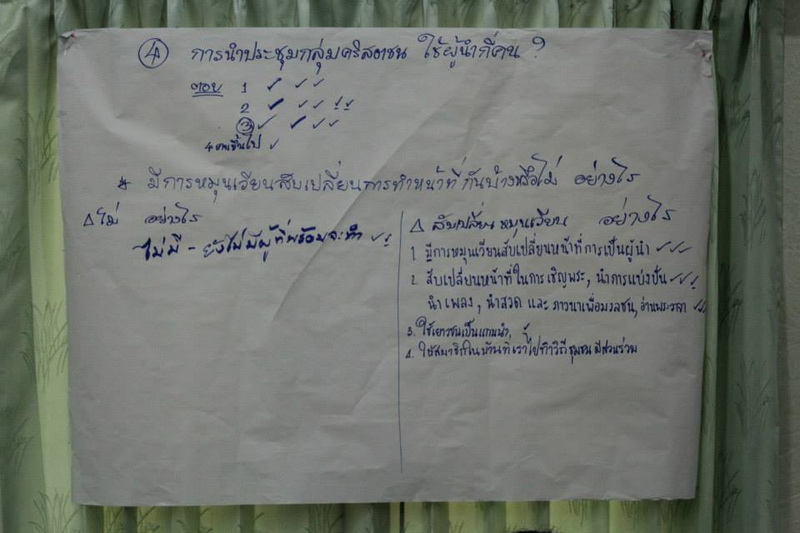 ④ การนำประชุมกลุ่มคริสตชน ใช้ผู้นำกี่คน ?
ตอบ 1 ✓ ✓ ✓
2 ✓ ✓ ✓ ✓ ✓
③ ✓ ✓ ✓ ✓
4 คนขึ้นไป ✓
* มีการหมุนเวียนสับเปลี่ยนการทำหน้าที่กันบ้างหรือไม่ อย่างไร
△ ไม่ อย่างไร
ไม่มี - ยังไม่มีผู้ที่พร้อมจะทำ ✓ ✓
△ สับเปลี่ยน หมุนเวียน อย่างไร
1 มีการหมุนเวียนสับเปลี่ยนหน้าที่การเป็นผู้นำ ✓ ✓ ✓
2. สับเปลี่ยนหน้าที่ในการเชิญพระ, นำการแบ่งปัน ✓ ✓ ✓
นำเพลง, นำสวด และ ภาวนาเพื่อมวลชน, อ่านพระวาจา ✓ ✓
3. ใช้เยาวชนเป็นแกนนำ,
4. ให้สมาชิกในบ้านที่เราไปทำวิถีชุมชน มีส่วนร่วม